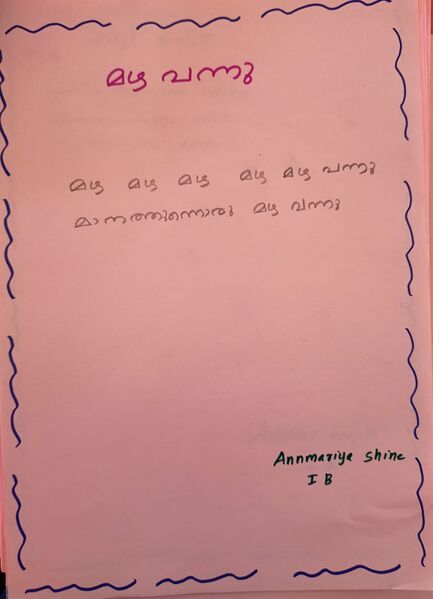 മഴ വന്നു
മഴ മഴ മഴ മഴ മഴ വന്നു
മാനത്തുന്നൊരു മഴ വന്നു
Annmariya Shine
I B